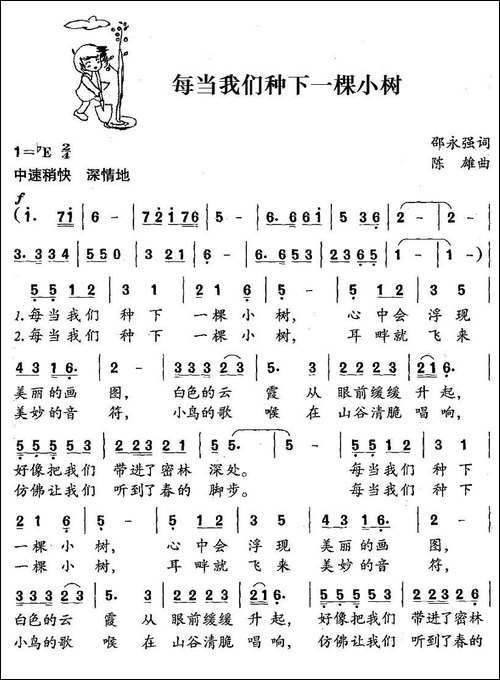 每当我们种下一棵小树
邵永强词
1=♭E 2/4
陈雄曲
中速稍快 深情地
f
(i. 7i | 6 - | 7 2 i 7 6 | 5 - | 6. 6 6 i | 5 3 6 | 2 - | 2 - |
3. 3 3 4 | 5 5 0 | 3 2 1 | 6 - | 6. 6 5 3 | 2 3 6 5 | 1 - | 1 - ) |
5 5 1 2 | 3 1 | 2 1 6 | 5 - | 5 5 1 2 | 3 5 |
1.每当我们 种下 一棵小树, 心中会浮现
2.每当我们 种下 一棵小树, 耳畔就飞来
4 3 1 6. | 2 - | 3 3 3 3 2 3 | 5. 3 | 2 2 2 2 2 3 | 2 1 6. |
美丽的画图, 白色的云霞从眼前缓缓升起,
美妙的音符, 小鸟的歌喉在山谷清脆唱响,
5 5 5 5 5 3 | 2 2 2 3 2 1 | 5 5. | 5 - | 5 5 1 2 | 3 1 |
好像把我们 带进了密林 深处。 每当我们 种下
仿佛让我们 听到了春的 脚步。 每当我们 种下
2 1 6 | 5 - | 5 1 2 | 3 5 | 4 3 1 6. | 2 - |
一棵小树, 心中会浮现 美丽的画图,
一棵小树, 耳畔就飞来 美妙的音符,
3 3 3 3 2 3 | 5. 3 | 2 2 2 2 2 3 | 2 1 6. | 5 5 5 5 5 3 | 2 2 2 3 2 1 |
白色的云霞从眼前缓缓升起, 好像我们 带进了密林
小鸟的歌喉在山谷清脆唱响, 仿佛让我们 听到了春的